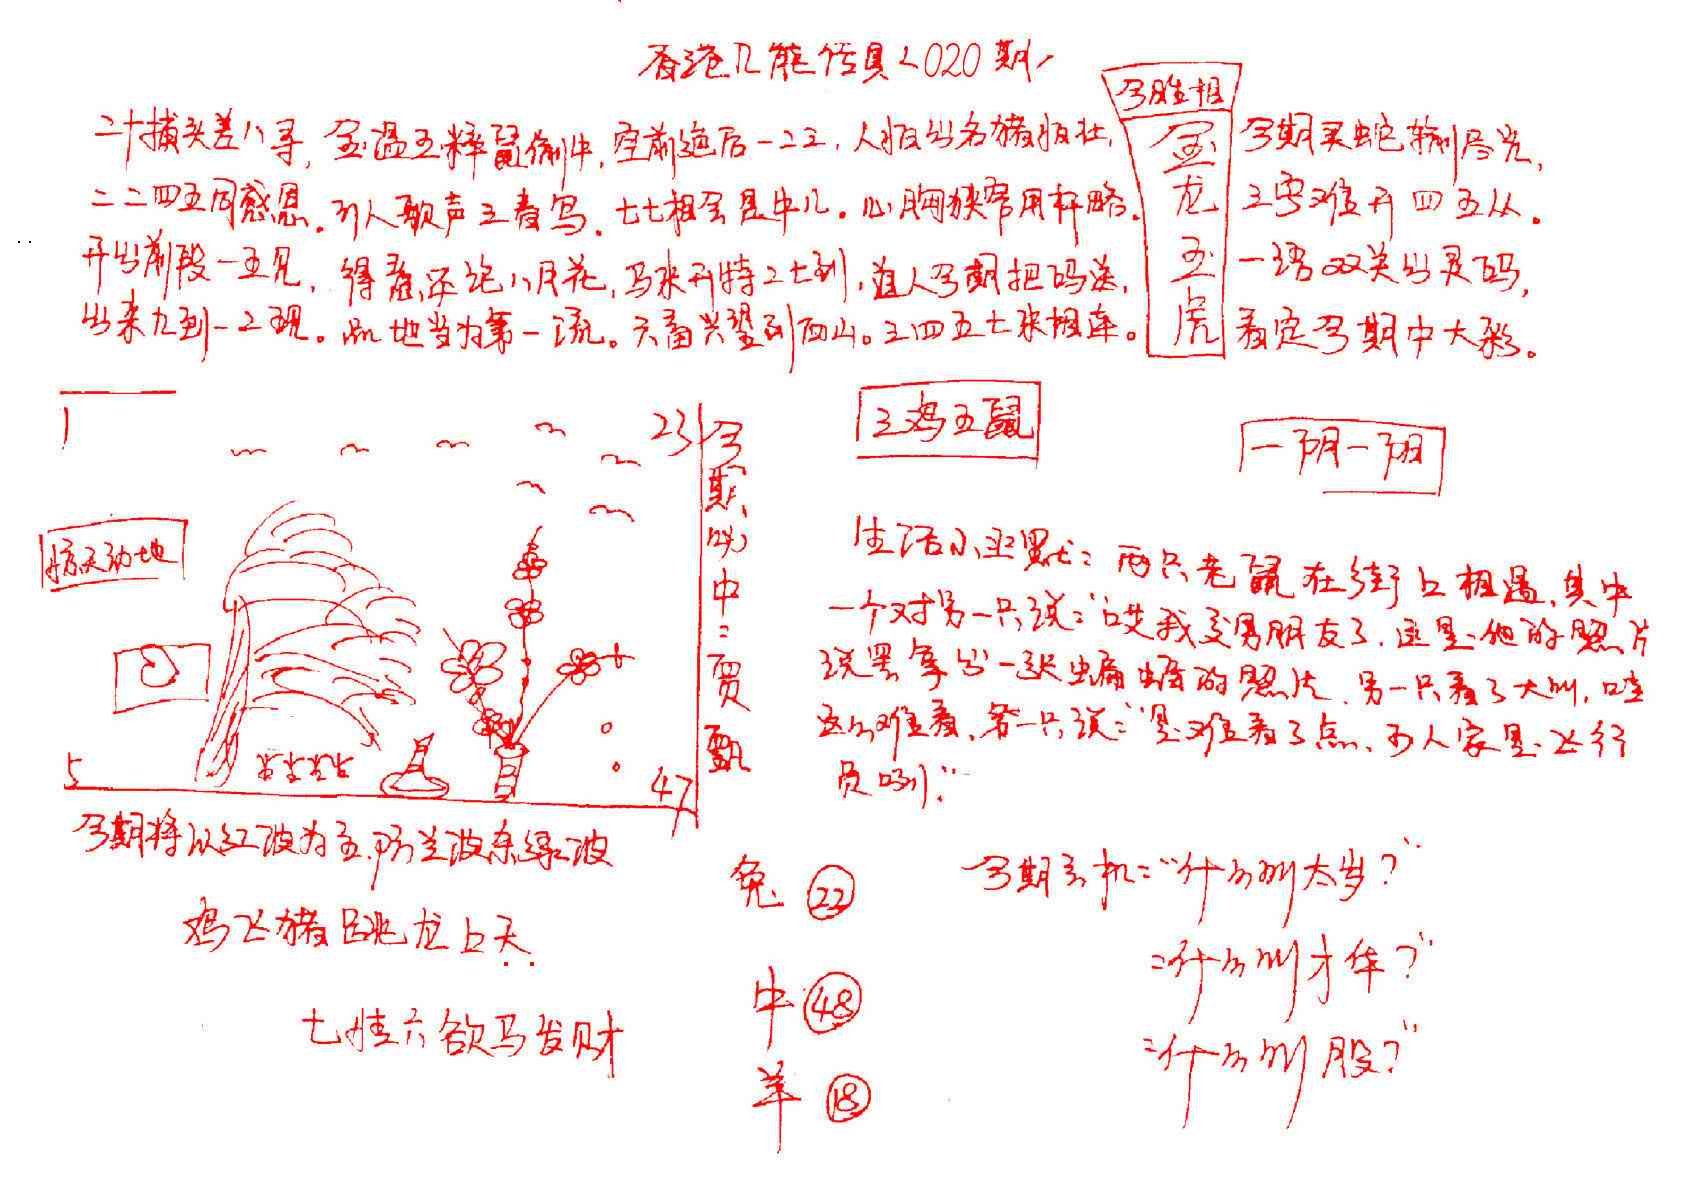 香港几能传具<020期
今胜相
金龙玉虎
二十捕头差八寻,金温五粹鼠偷牛,空前绝后一二三,人怕出名猪怕壮,
今期买蛇输尽光,
二二四五同感恩。引人歌声三春鸟。七七相会是牛儿。心胸狭窄用杆略。
三字难开四五从。
开出前段一五见,得意还说八月花,马来开特二七到,道人今期把码送,
一语双关出灵码,
出来九到一二现。此地当为第一流。六畜兴望到西山。三四五七来相连。
看定今期中大彩。
1
23
5
47
惊天动地
今期必中:贾甄
三鸡五鼠
一阴一阳
生活小幽默:两只老鼠在街上相遇,其中
一个对另一只说:"哎我交男朋友了,这是他的照片
说罢拿出一张蝙蝠的照片,另一只看了大叫,哇
这么难看,第一只说:"是难看了点,可人家是飞行
员咧!"
今期将以红波为主,防兰波杀绿波
鸡飞猪跳龙上天
七情六欲马发财
兔 22
牛 48
羊 18
今期玄机:"什么叫太岁?"
:"什么叫才华?"
:"什么叫股?"